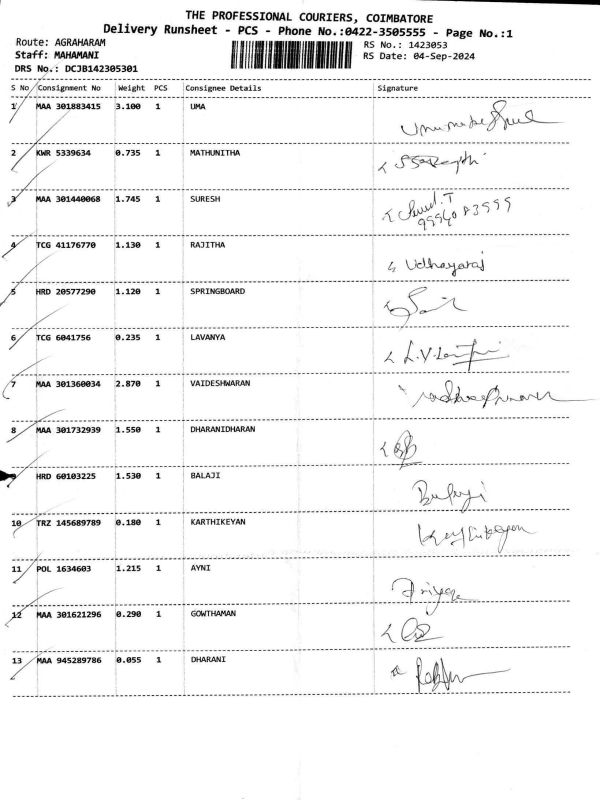 THE PROFESSIONAL COURIERS, COIMBATORE
Delivery Runsheet - PCS - Phone No.:0422-3505555 - Page No.:1
Route: AGRAHARAM
RS No.: 1423053
Staff: MAHAMANI
RS Date: 04-Sep-2024
DRS No.: DCJB142305301
S No Consignment No Weight PCS Consignee Details Signature
1 MAA 301883415 3.100 1 UMA
2 KWR 5339634 0.735 1 MATHUNITHA
3 MAA 301440068 1.745 1 SURESH
99940 83999
4 TCG 41176770 1.130 1 RAJITHA Udhayaraj
5 HRD 20577290 1.120 1 SPRINGBOARD
6 TCG 6041756 0.235 1 LAVANYA
7 MAA 301360034 2.870 1 VAIDESHWARAN
8 MAA 301732939 1.550 1 DHARANIDHARAN
9 HRD 60103225 1.530 1 BALAJI Balaji
10 TRZ 145689789 0.180 1 KARTHIKEYAN
11 POL 1634603 1.215 1 AYNI
12 MAA 301621296 0.290 1 GOWTHAMAN
13 MAA 945289786 0.055 1 DHARANI